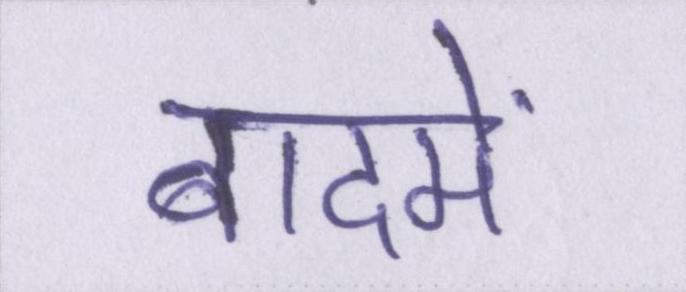 बादमें